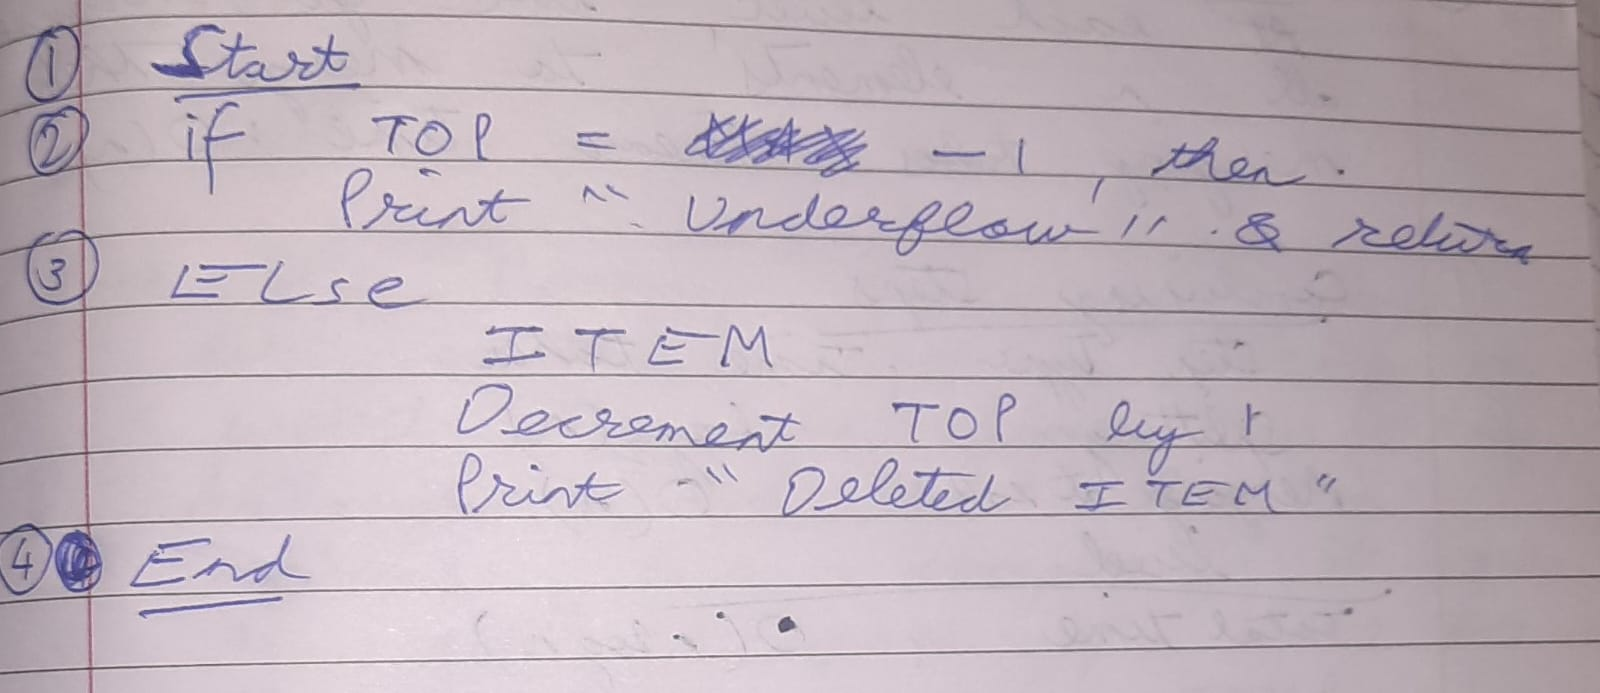 ① Start
② if TOP = -1, then.
Print " Underflow " & return
③ ELse
ITEM
Decrement TOP by 1
Print " Deleted ITEM "
④ End